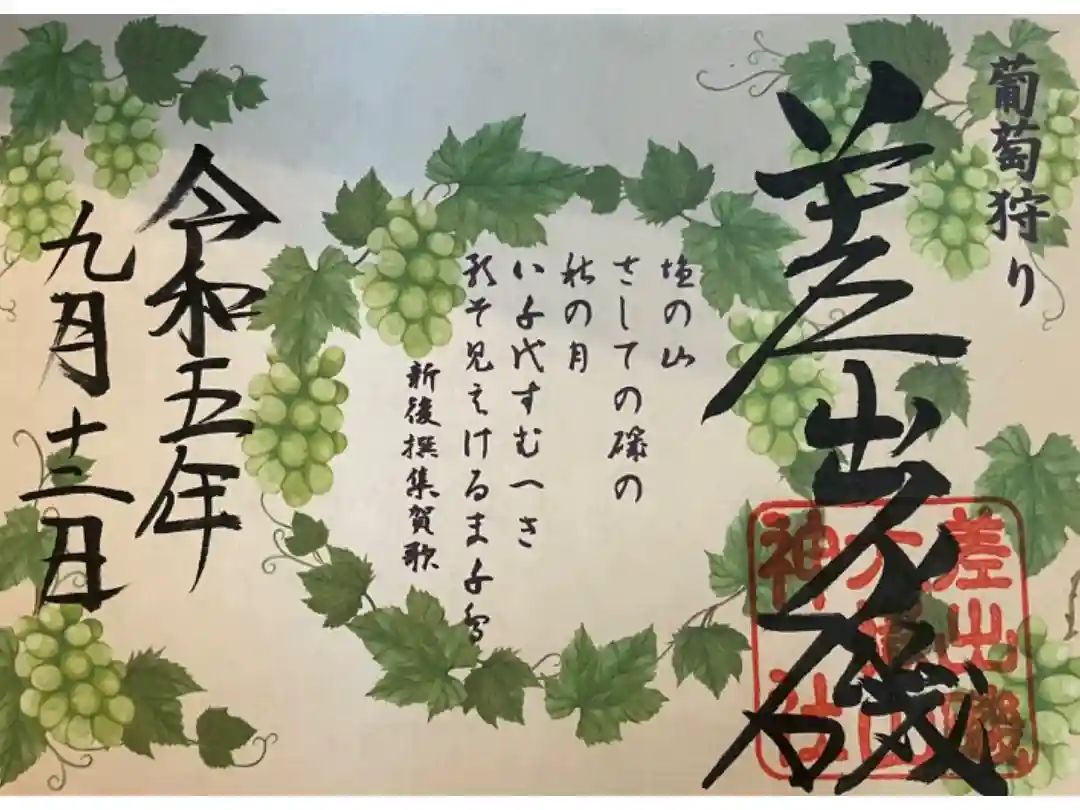 葡萄狩り
差出磯
差出磯
大嶽山
神社
塩の山
さしての磯の
秋の月
八千代すむへき
影そ見えける
新後撰集賀歌
令和五年
九月十二日